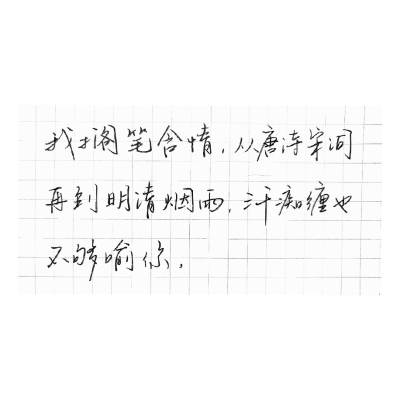 我搁笔含情,从唐诗宋词
再到明清烟雨,汗痴缠也
不够喻你,